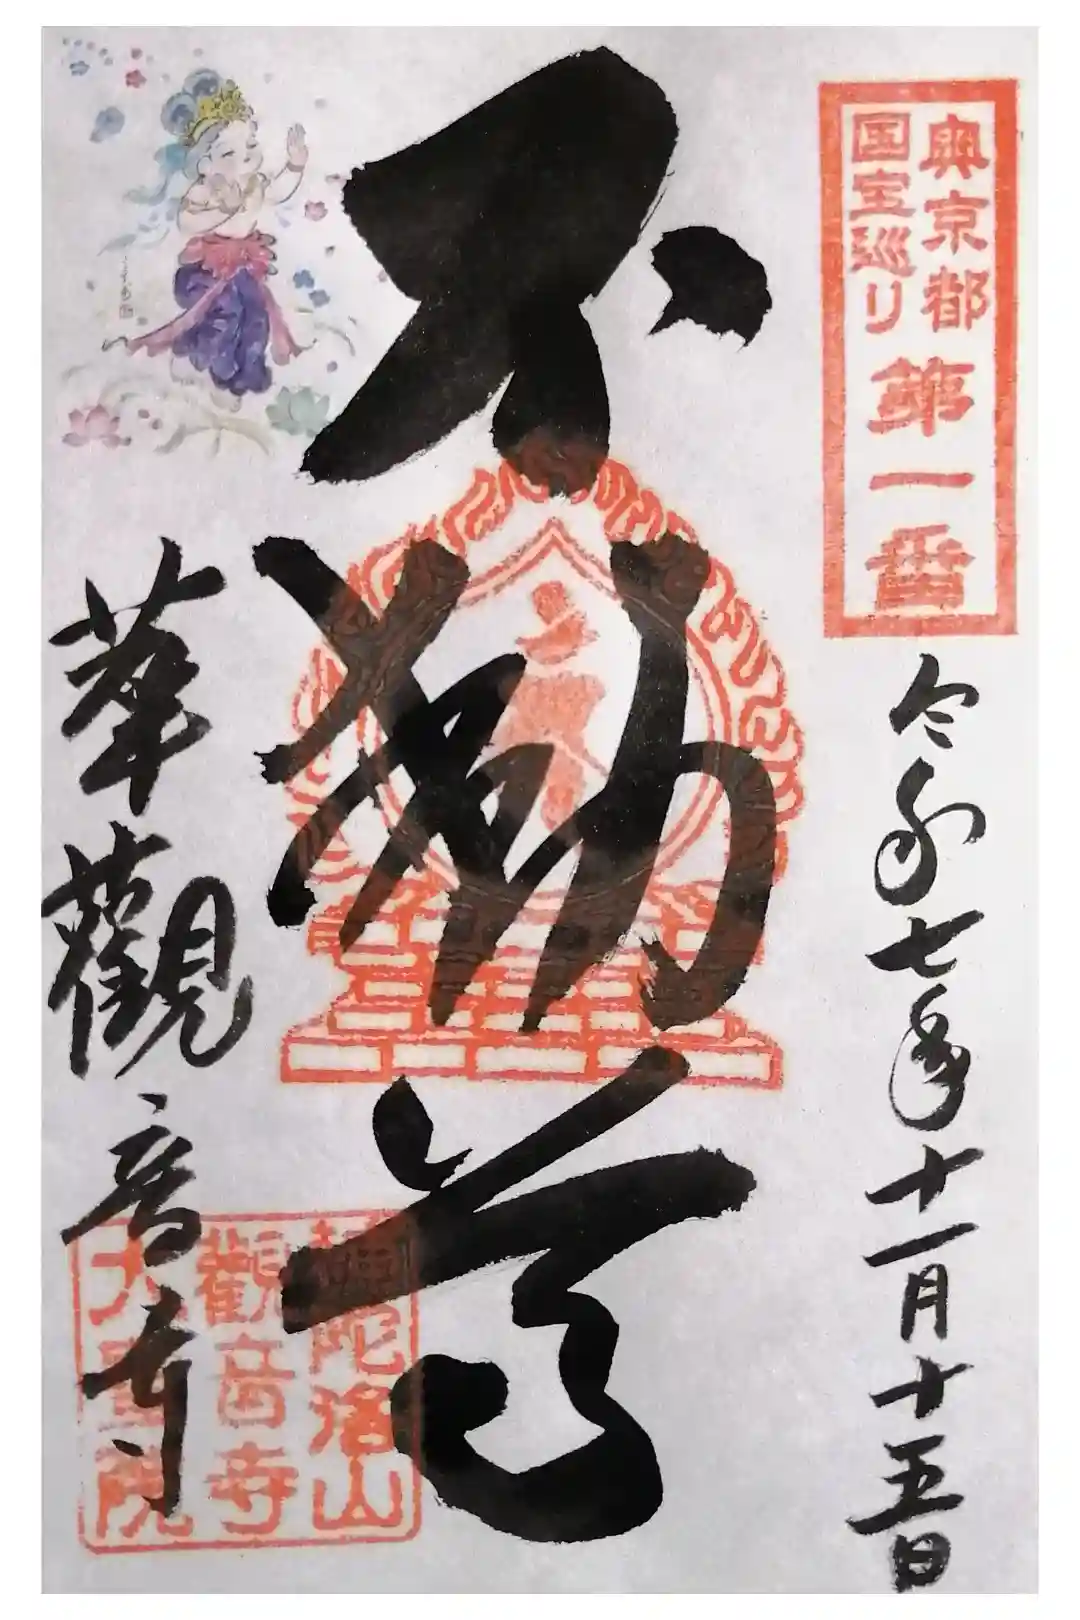 奥京都
国宝巡リ
第一番
令和七年十一月十五日
不動尊
華觀音寺
補陀洛山
觀音寺
大聖院